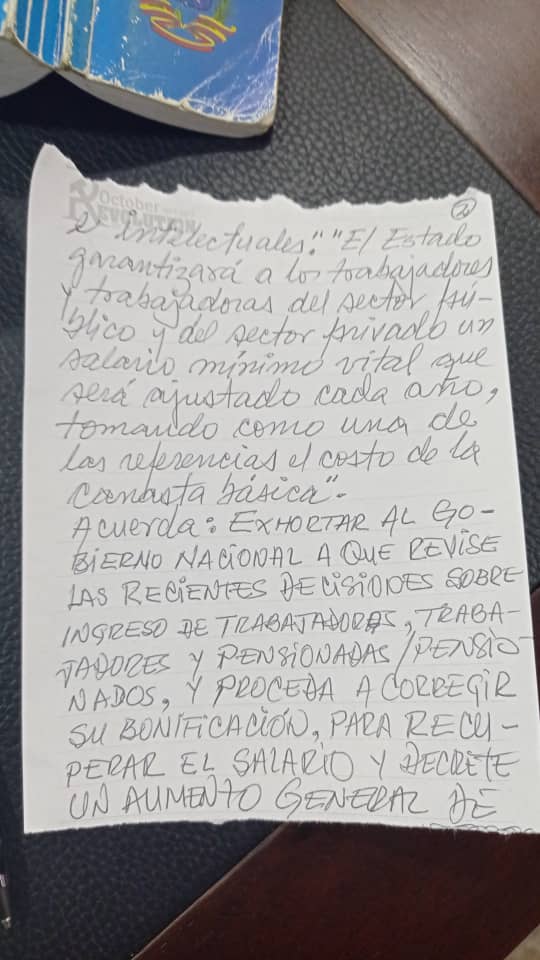 October
REVOLUTION
②
e intelectuales." "El Estado
garantizará a los trabajadores
y trabajadoras del sector pú-
blico y del sector privado un
salario mínimo vital que
será ajustado cada año,
tomando como una de
las referencias el costo de la
canasta básica".
Acuerda: EXHORTAR AL GO-
BIERNO NACIONAL A QUE REVISE
LAS RECIENTES DECISIONES SOBRE
INGRESO DE TRABAJADORAS, TRABA-
JADORES Y PENSIONADAS/PENSIO-
NADOS, Y PROCEDA A CORREGIR
SU BONIFICACIÓN, PARA RECU-
PERAR EL SALARIO Y DECRETE
UN AUMENTO GENERAL DE